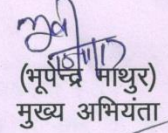 (भूपेन्द्र माथुर)
मुख्य अभियंता